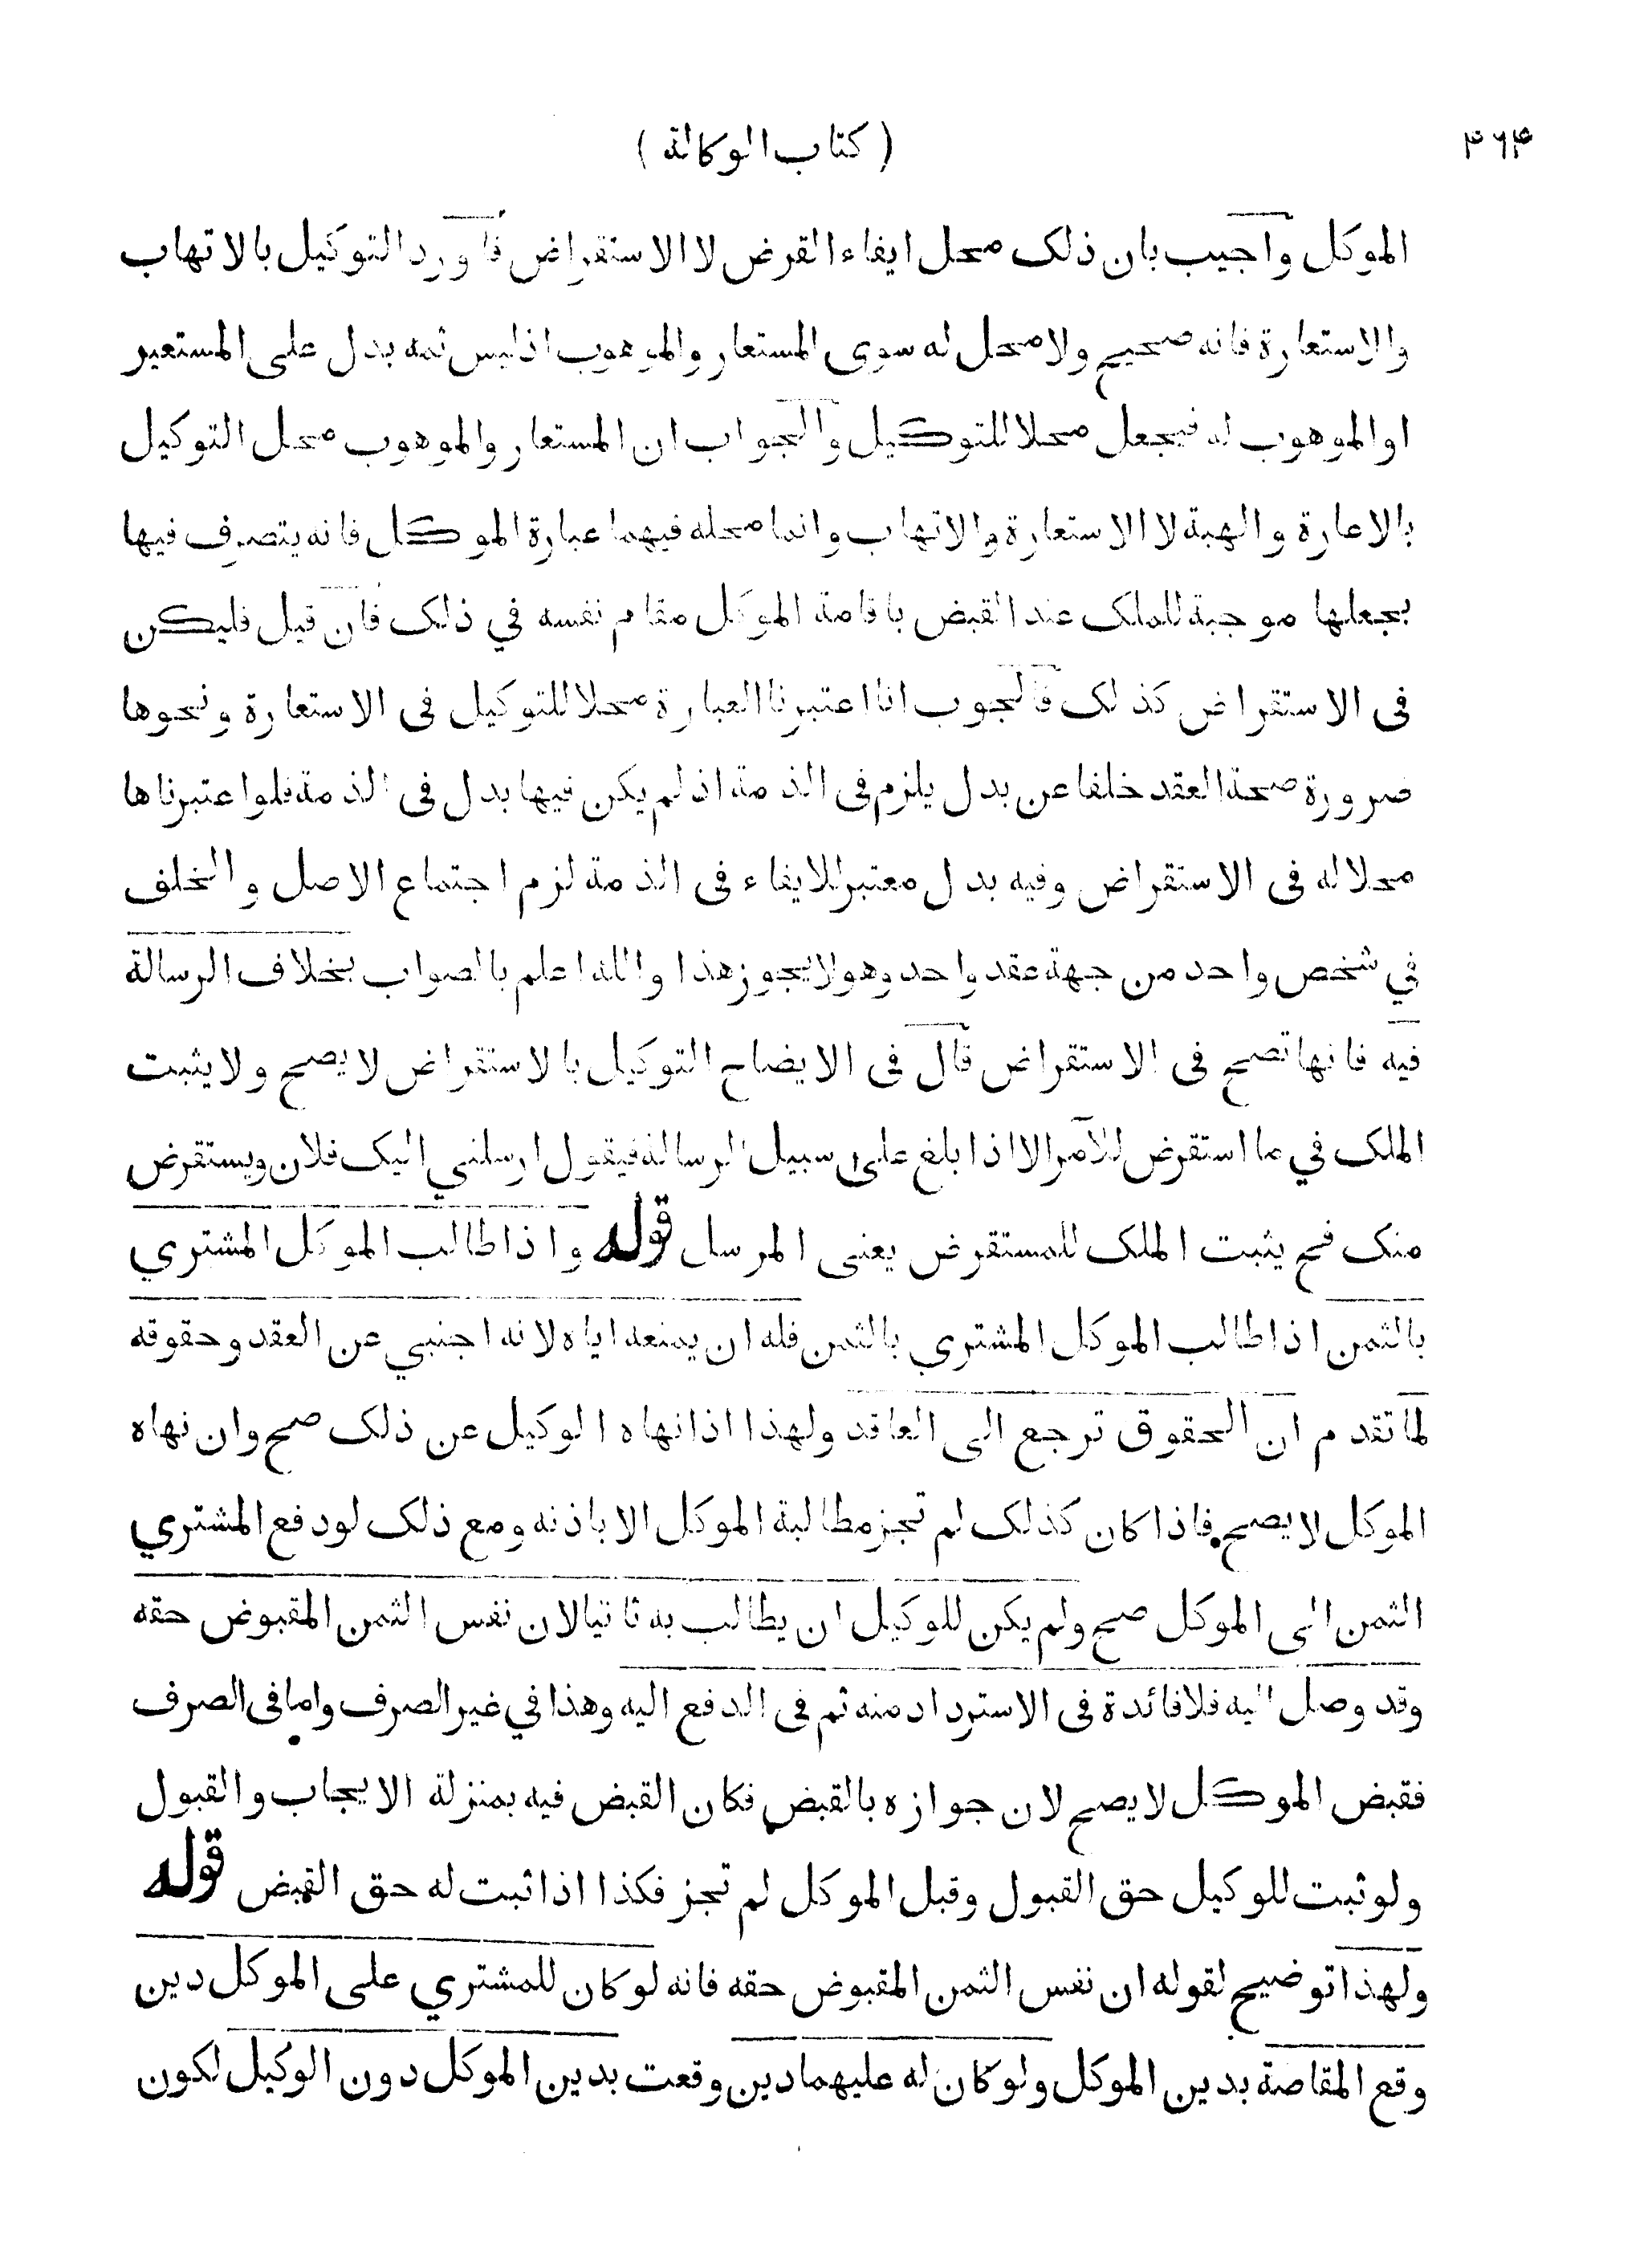 ۴۶۴
( كتاب الوكالة )
الموكل واجيب بان ذلك محل ايفاء القرض لا الاستقراض فاورد التوكيل بالاتهاب
والاستعارة فانه صحيح ولا محل له سوى المستعار والموهوب اذ ليس ثمه بدل على المستعير
او الموهوب له فيجعل محلا للتوكيل والجواب ان المستعار والموهوب محل التوكيل
بالاعارة والهبة لا الاستعارة والاتهاب وانما محله فيهما عبارة الموكل فانه يتصرف فيها
بجعلها موجبة للملك عند القبض باقامة الموكل مقام نفسه في ذلك فان قيل فليكن
فى الاستقراض كذلك فالجوب انا اعتبرنا العبارة محلا للتوكيل فى الاستعارة ونحوها
ضرورة صحة العقد خلفا عن بدل يلزم فى الذمة اذ لم يكن فيها بدل فى الذمة فلو اعتبرناها
محلا له فى الاستقراض وفيه بدل معتبر للايفاء فى الذمة لزم اجتماع الاصل والخلف
في شخص واحد من جهة عقد واحد وهو لا يجوز هذا والله اعلم بالصواب بخلاف الرسالة
فيه فانها تصح فى الاستقراض قال فى الايضاح التوكيل بالاستقراض لا يصح ولا يثبت
الملك في ما استقرض للآمر الا اذا بلغ على سبيل الرسالة فيقول ارسلني اليك فلان ويستقرض
منك فح يثبت الملك للمستقرض يعنى المرسل قوله واذا طالب الموكل المشتري
بالثمن اذا طالب الموكل المشتري بالثمن فله ان يمنعه اياه لانه اجنبي عن العقد وحقوقه
لما تقدم ان الحقوق ترجع الى العاقد ولهذا اذا نهاه الوكيل عن ذلك صح وان نهاه
الموكل لا يصح فاذا كان كذلك لم تجز مطالبة الموكل الا باذنه ومع ذلك لو دفع المشتري
الثمن الى الموكل صح ولم يكن للوكيل ان يطالب به ثانيا لان نفس الثمن المقبوض حقه
وقد وصل اليه فلا فائدة فى الاسترداد منه ثم فى الدفع اليه وهذا في غير الصرف واما فى الصرف
فقبض الموكل لا يصح لان جوازه بالقبض فكان القبض فيه بمنزلة الايجاب والقبول
ولو ثبت للوكيل حق القبول وقبل الموكل لم تجز فكذا اذا ثبت له حق القبض قوله
ولهذا توضيح لقوله ان نفس الثمن المقبوض حقه فانه لو كان للمشتري على الموكل دين
وقع المقاصة بدين الموكل ولو كان له عليهما دين وقعت بدين الموكل دون الوكيل لكون